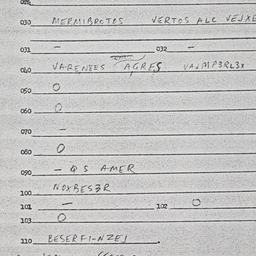 030 MERMIBROTOS VERTOS ALC VEJXE
031 - 032 -
040 VARENTES AGRES
050 O
060 O
070 -
080 O
090 - QS AMER
100 NOXBESER
101 - 102 O
103 O
110 BESERFI-NZEJ